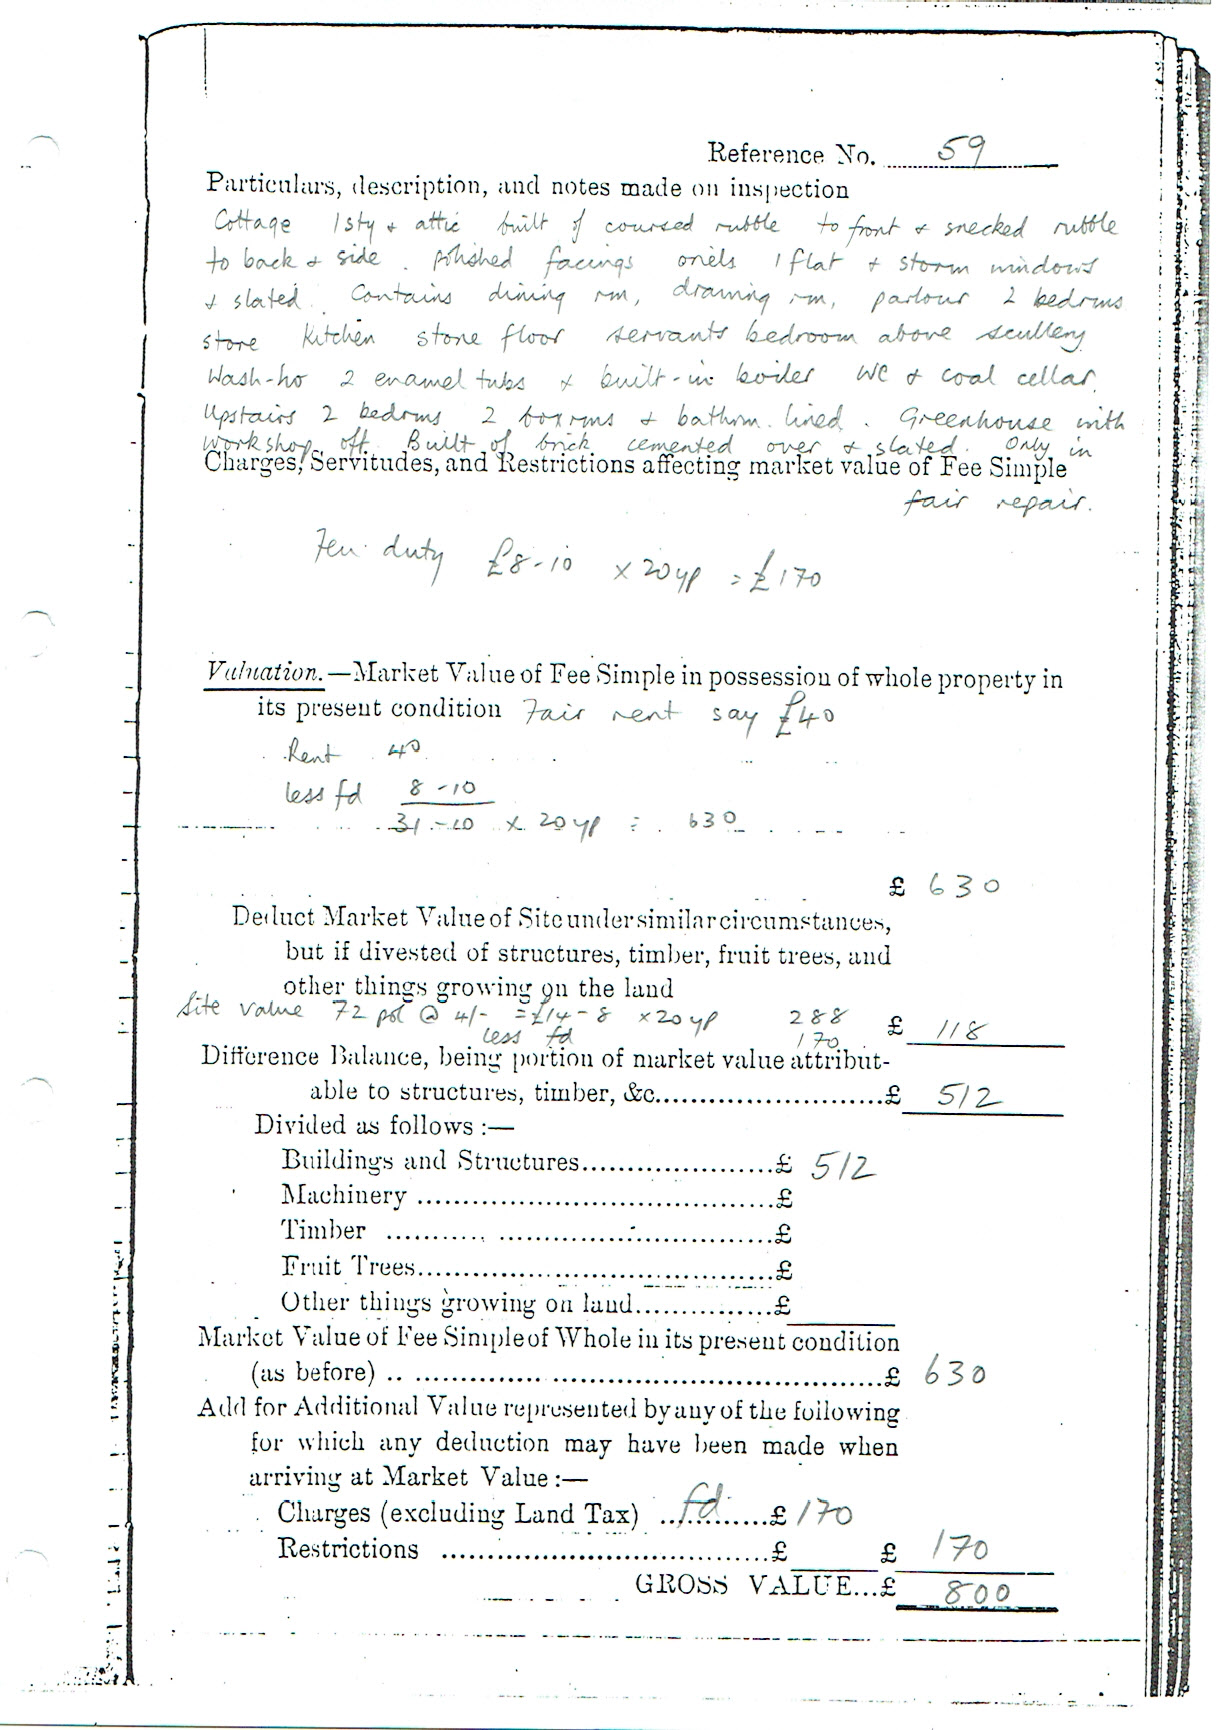 Reference No. 59
Particulars, description, and notes made on inspection
Cottage 1 sty & attic built of coursed rubble to front & snecked rubble
to back & side. polished facings oriels 1 flat & storm windows
& slated. Contains dining rm, drawing rm, parlour 2 bedrms
store Kitchen stone floor servants bedroom above scullery
Wash-ho 2 enamel tubs & built-in boiler WC & coal cellar.
Upstairs 2 bedrms 2 boxrms & bathrm. lined. Greenhouse with
workshop off. Built of brick cemented over & slated. Only in
Charges, Servitudes, and Restrictions affecting market value of Fee Simple
fair repair.
Feu duty £8-10 x 20yp = £170
Valuation.—Market Value of Fee Simple in possession of whole property in
its present condition Fair rent say £40
Rent 40
less fd 8-10
31-10 x 20yp = 630
£ 630
Deduct Market Value of Site under similar circumstances,
but if divested of structures, timber, fruit trees, and
other things growing on the land
Site value 72 pol @ 4/- = £14-8 x 20yp 288 £ 118
less fd 170
Difference Balance, being portion of market value attribut-
able to structures, timber, &c........................£ 512
Divided as follows :—
Buildings and Structures.....................£ 512
Machinery .......................................£
Timber ...........................................£
Fruit Trees.......................................£
Other things growing on land...............£
Market Value of Fee Simple of Whole in its present condition
(as before) .. ................................................£ 630
Add for Additional Value represented by any of the following
for which any deduction may have been made when
arriving at Market Value :—
Charges (excluding Land Tax) ..fd.......£ 170
Restrictions ....................................£ £ 170
GROSS VALUE...£ 800